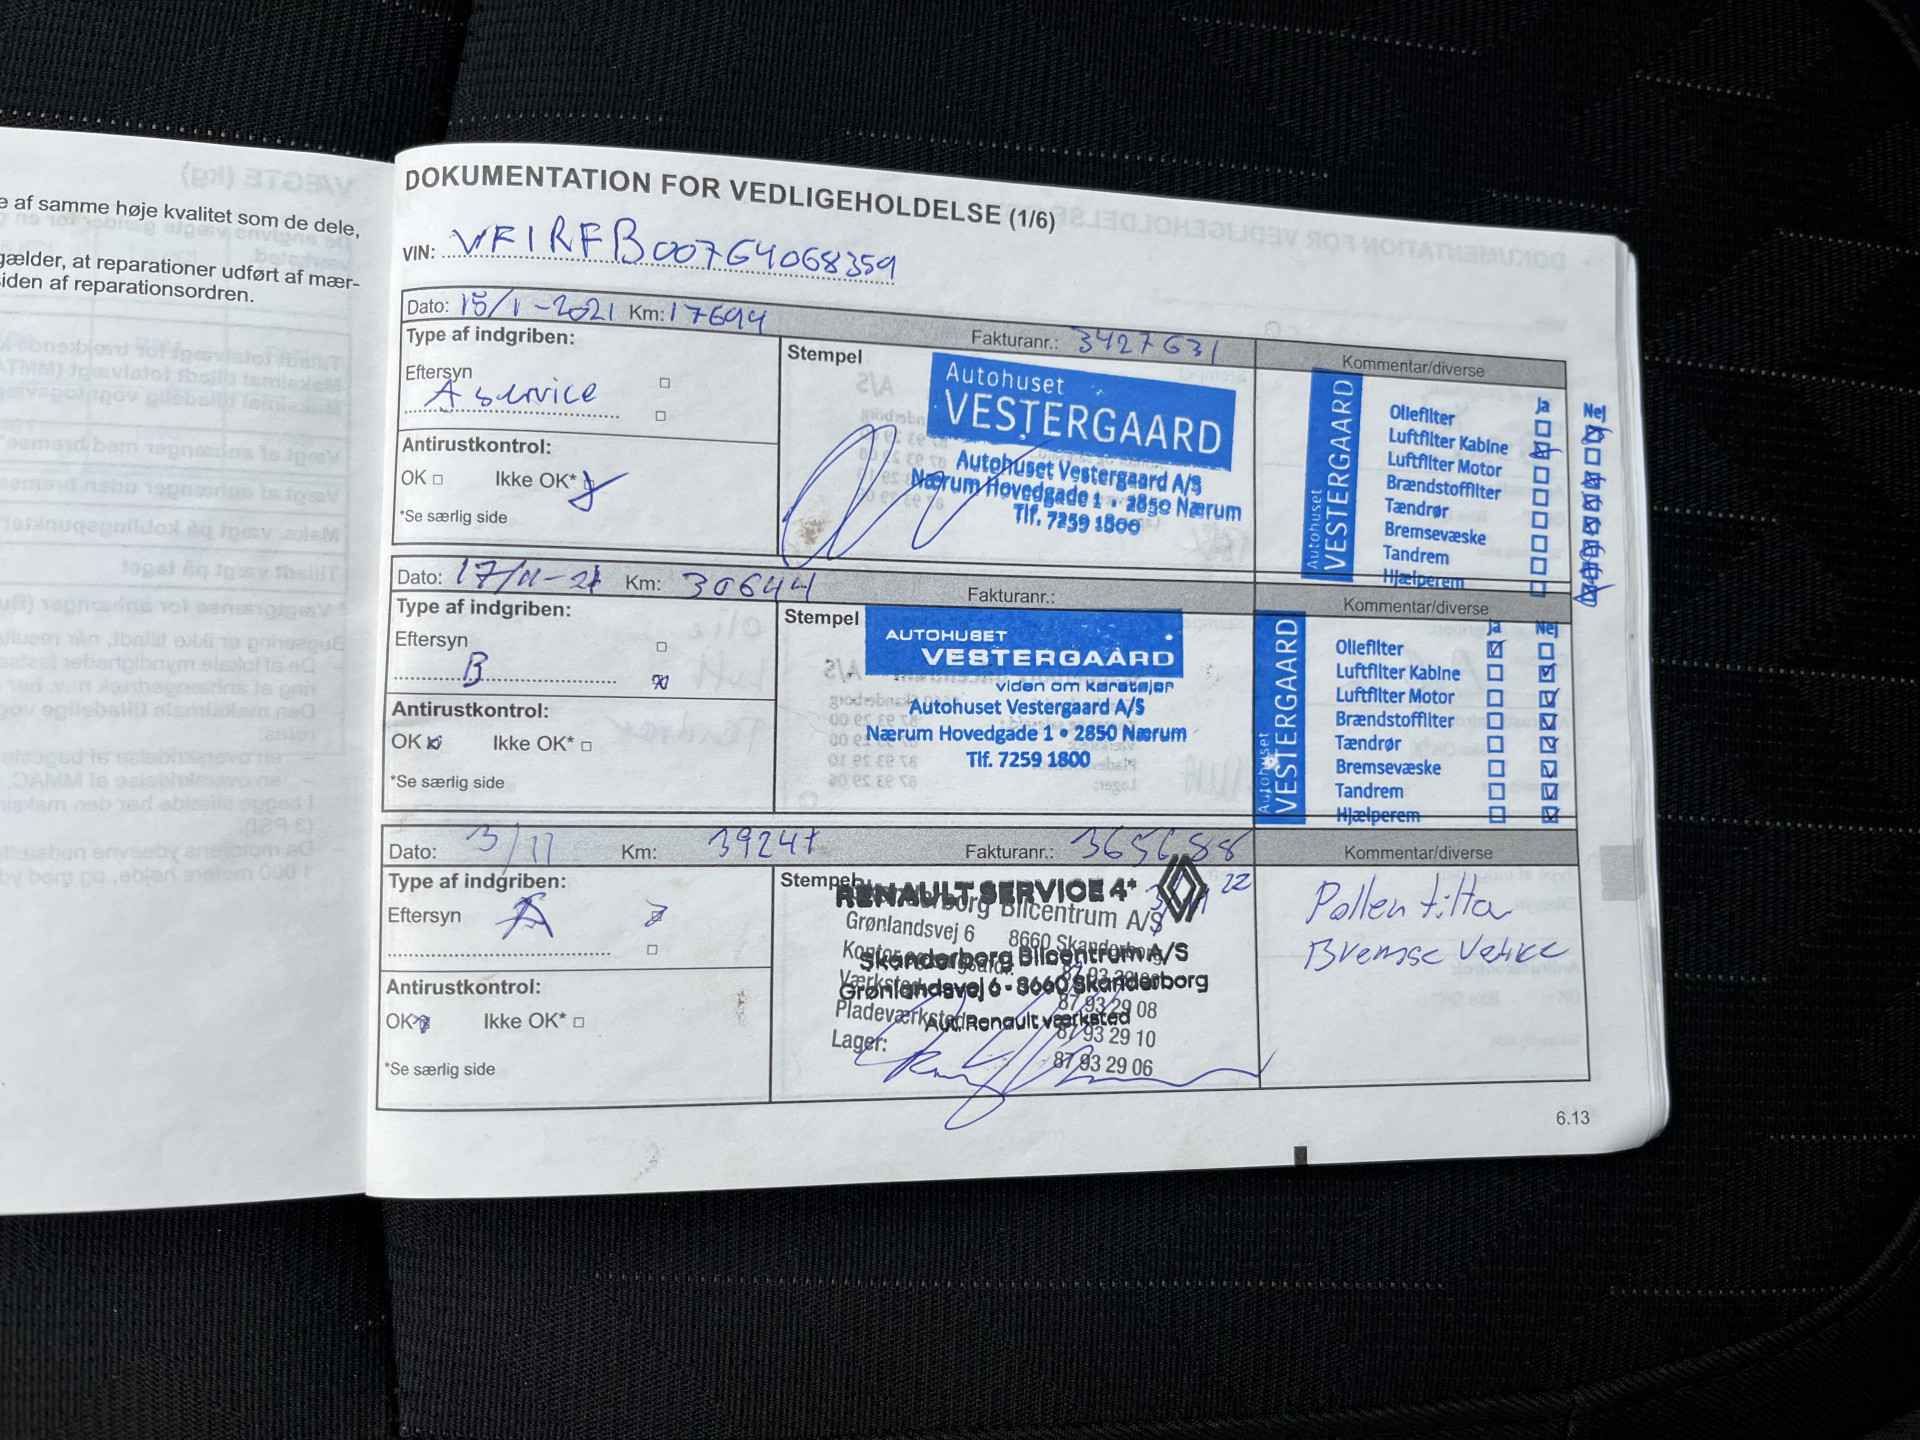 e af samme høje kvalitet som de dele,
gælder, at reparationer udført af mær-
siden af reparationsordren.
DOKUMENTATION FOR VEDLIGEHOLDELSE (1/6)
VIN: VF1RFB00764068359
Dato: 15/1-2021 Km: 17694 Fakturanr.: 3427631 Kommentar/diverse
Type af indgriben:
Eftersyn
A service
Antirustkontrol:
OK Ikke OK*
*Se særlig side
Stempel
Autohuset
VESTERGAARD
Autohuset Vestergaard A/S
Nærum Hovedgade 1 • 2850 Nærum
Tlf. 7259 1800
Autohuset
VESTERGAARD
Ja Nej
Oliefilter
Luftfilter Kabine
Luftfilter Motor
Brændstoffilter
Tændrør
Bremsevæske
Tandrem
Hjælperem
Dato: 17/11-21 Km: 30644 Fakturanr.: Kommentar/diverse
Type af indgriben:
Eftersyn
B
Antirustkontrol:
OK Ikke OK*
*Se særlig side
Stempel
AUTOHUSET
VESTERGAARD
viden om køretøjer
Autohuset Vestergaard A/S
Nærum Hovedgade 1 • 2850 Nærum
Tlf. 7259 1800
Autohuset
VESTERGAARD
Ja Nej
Oliefilter
Luftfilter Kabine
Luftfilter Motor
Brændstoffilter
Tændrør
Bremsevæske
Tandrem
Hjælperem
Dato: 3/11 Km: 39247 Fakturanr.: 3656688 Kommentar/diverse
Type af indgriben:
Eftersyn A
Antirustkontrol:
OK Ikke OK*
*Se særlig side
Stempel
RENAULT SERVICE 4*
22
Skanderborg Bilcentrum A/S
Grønlandsvej 6 8660 Skanderborg
Skanderborg Bilcentrum A/S
Værksted
Grønlandsvej 6 - 8660 Skanderborg
87 93 29 08
Pladeværksted
Aut. Renault værksted
87 93 29 10
Lager:
87 93 29 06
Pollen filter
Bremse Væske
6.13